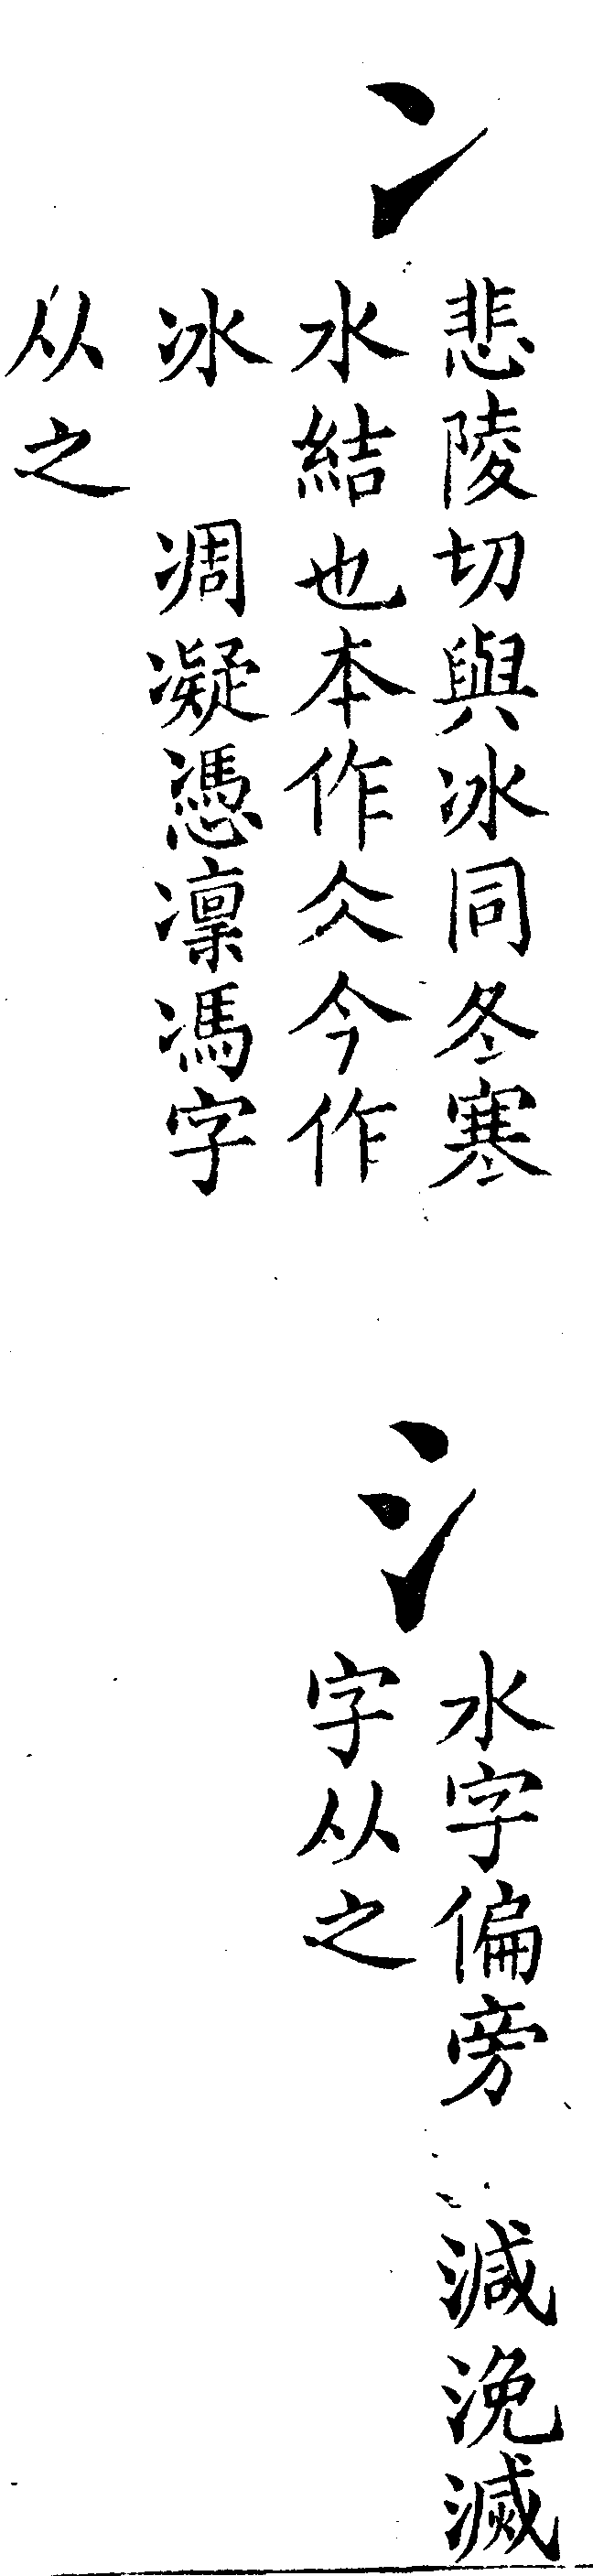 冫
悲陵切與冰同冬寒
水結也本作仌今作
冰　凋凝憑凛馮字
从之
氵
水字偏旁　減浼滅
字从之